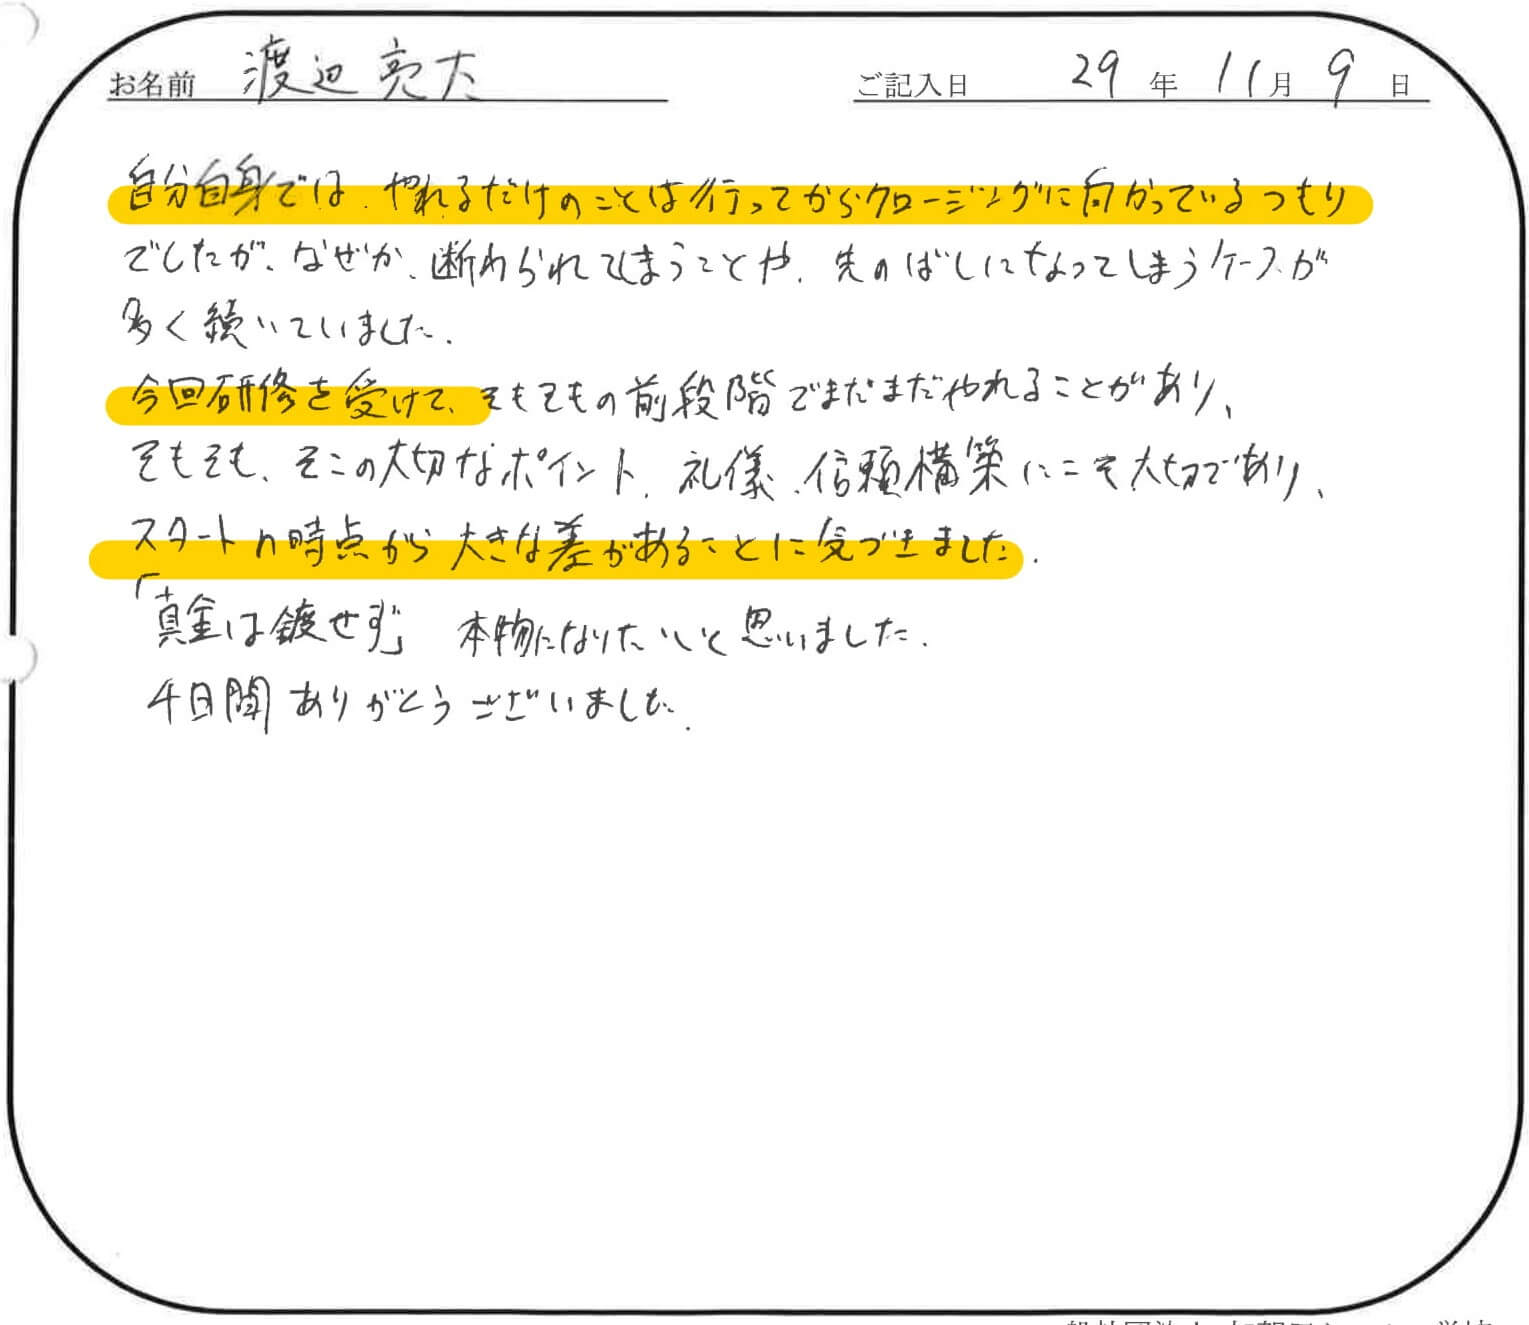 お名前 渡辺亮太 ご記入日 29年11月9日
自分自身では、やれるだけのことは行ってからクロージングに向かっているつもり
でしたが、なぜか、断わられてしまうことや、先のばしになってしまうケースが
多く続いていました。
今回研修を受けて、そもそもの前段階でまだまだやれることがあり、
そもそも、そこの大切なポイント、礼儀、信頼構築にこそ大切であり、
スタートの時点から大きな差があることに気づきました。
「真金は鍍せず」 本物になりたいと思いました。
4日間ありがとうございました。